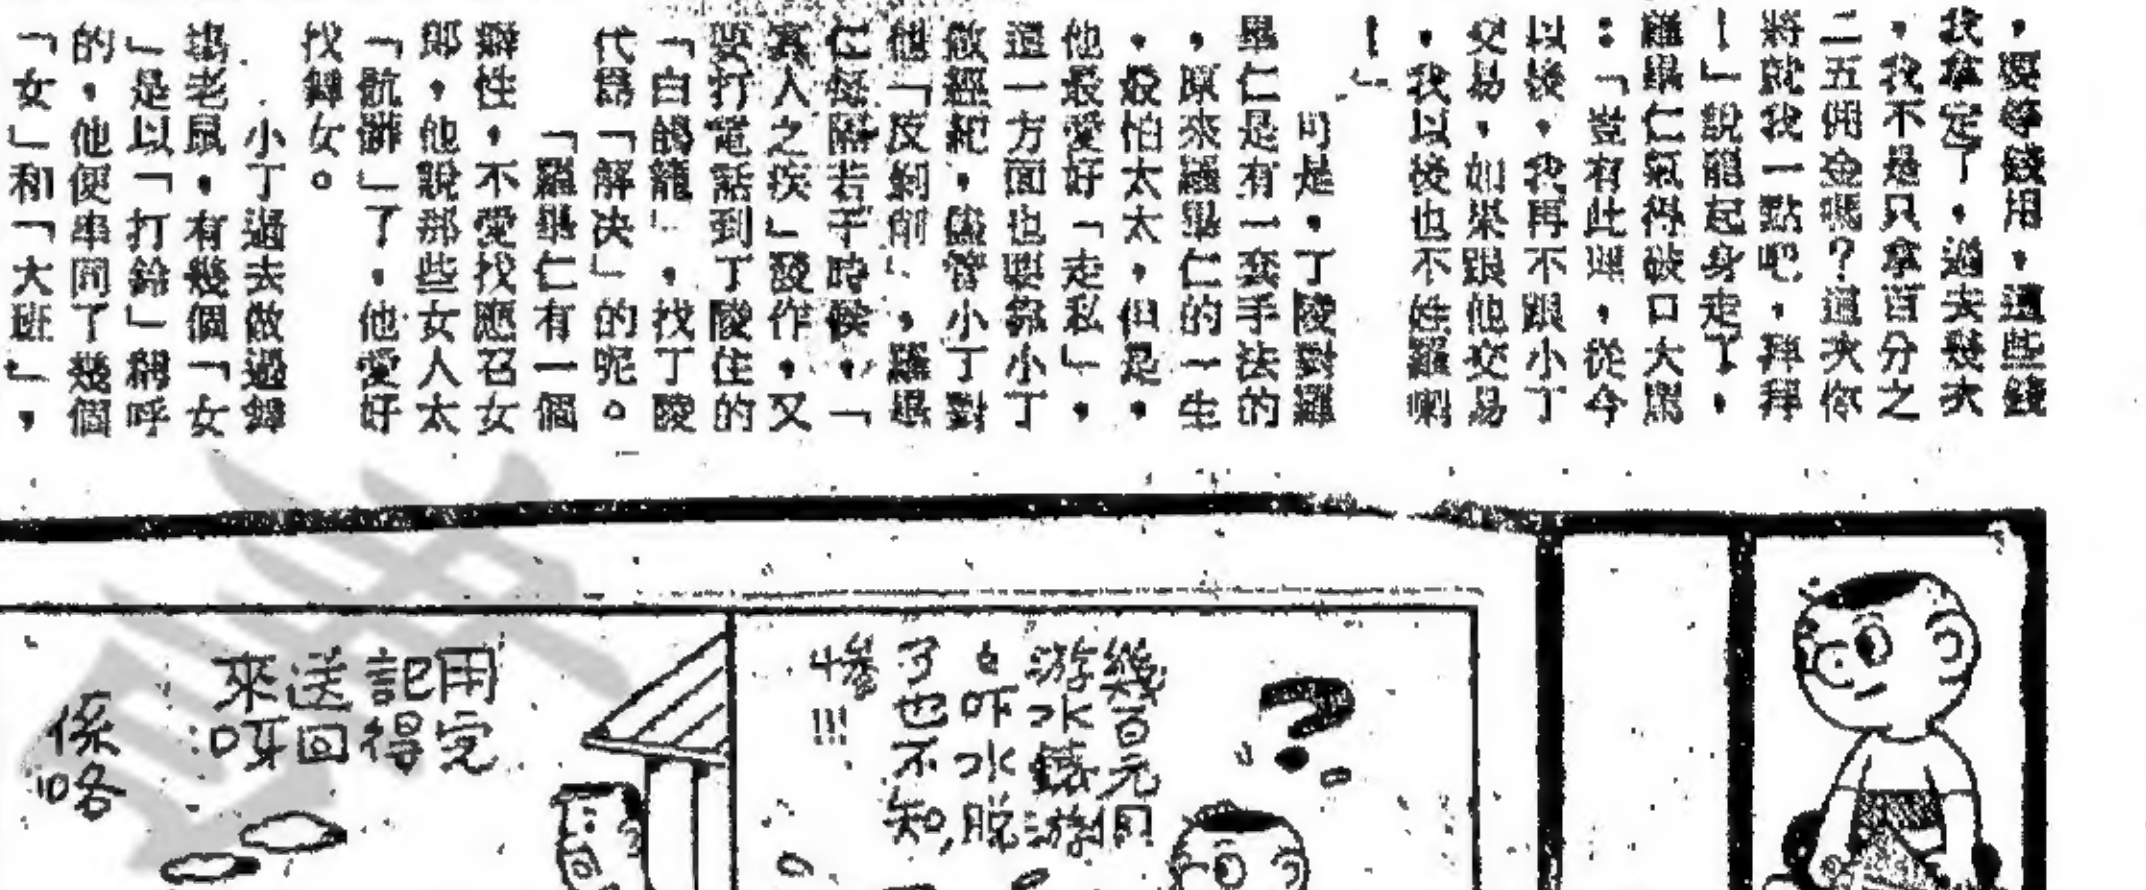 ，要等錢用，這些錢
我拿定了，過去幾次
，我不是只拿百分之
二五佣金嗎？這次你
將就我一點吧，拜拜
！」說罷起身走了，
羅畢仁氣得破口大罵
：「豈有此理，從今
以後，我再不跟小丁
交易，如果跟他交易
，我以後也不姓羅喇
！」
可是，丁陵對羅
畢仁是有一套手法的
，原來羅畢仁的一生
，最怕太太，但是，
他最愛好「走私」，
這一方面也要靠小丁
做經紀，儘管小丁對
他「反剝削」，羅畢
仁每隔若干時候，「
寡人之疾」發作，又
要打電話到丁陵住的
「白鴿籠」，找丁陵
代為「解决」的呢。
「羅畢仁有一個
癖性，不愛找應召女
郎，他說那些女人太
「骯髒」了，他愛好
找舞女。
小丁過去做過舞
塲老鼠，有幾個「女
」是以「打鈴」稱呼
的，他便串同了幾個
「女」和「大班」，
幾百元個
游水錶游
吓水脫
了也不知，
慘!!!
用完
記得
送回
來呀
係咯